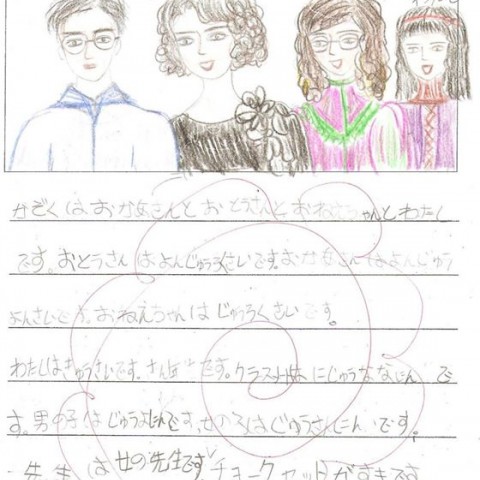 かぞくはおかあさんとおとうさんとおねえちゃんとわたし
です。おとうさんはよんじゅうろくさいです。おかあさんはよんじゅう
よんさいです。おねえちゃんはじゅうろくさいです。
わたしはきゅうさいです。さん年せいです。クラスメートはにじゅうななにんで
す。男の子はじゅうよにんです。女の子はじゅうさんにんです。
先生は女の先生です。チョークセットがすきです